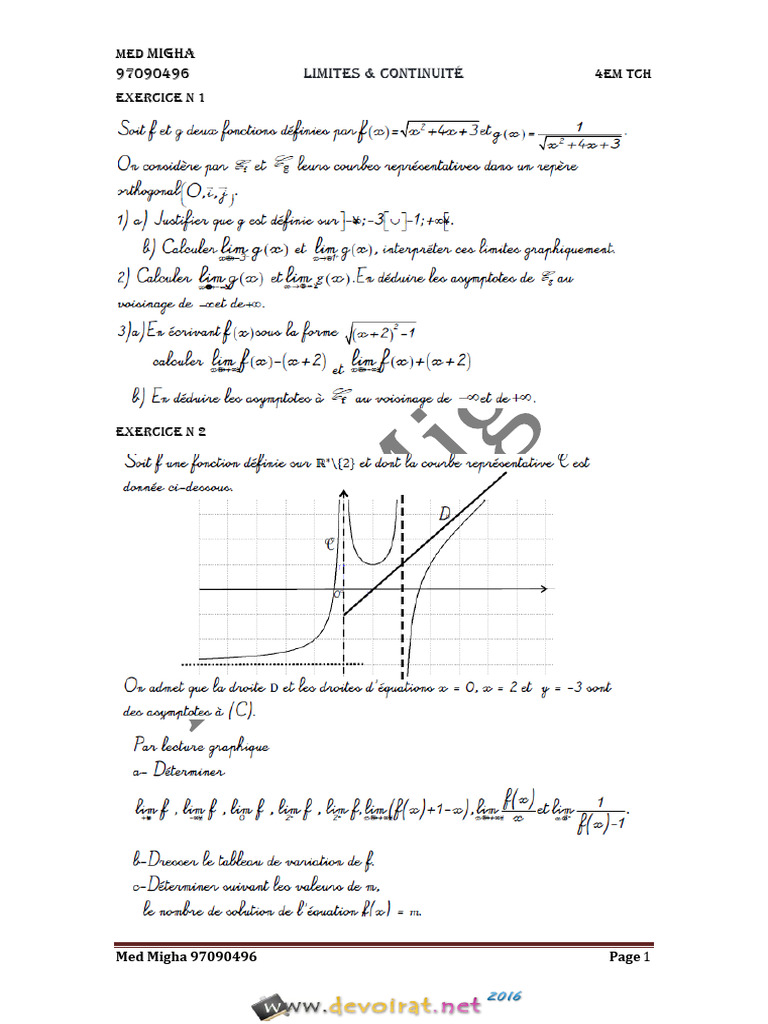 MED MIGHA
97090496 LIMITES & CONTINUITÉ 4EM TCH
EXERCICE N 1
Soit f et g deux fonctions définies par f(x)=√(x²+4x+3) et g(x)= 1/√(x²+4x+3) .
On considère par 𝒞f et 𝒞g leurs courbes représentatives dans un repère
orthogonal (O,i⃗,j⃗).
1) a) Justifier que g est définie sur ]-∞;-3[∪]-1;+∞[.
b) Calculer lim g(x) et lim g(x), interpréter ces limites graphiquement.
2) Calculer lim g(x) et lim g(x). En déduire les asymptotes de 𝒞g au
voisinage de -∞ et de +∞.
3)a) En écrivant f(x) sous la forme √((x+2)²-1)
calculer lim f(x)-(x+2) et lim f(x)+(x+2)
b) En déduire les asymptotes à 𝒞f au voisinage de -∞ et de +∞.
EXERCICE N 2
Soit f une fonction définie sur ℝ*\{2} et dont la courbe représentative C est
donnée ci-dessous.
D
C
O
On admet que la droite D et les droites d'équations x = 0, x = 2 et y = -3 sont
des asymptotes à (C).
Par lecture graphique
a- Déterminer
lim f , lim f , lim f , lim f , lim f, lim(f(x)+1-x), lim f(x)/x et lim 1/(f(x)-1) .
b-Dresser le tableau de variation de f.
c-Déterminer suivant les valeurs de m,
le nombre de solution de l'équation f(x) = m.
Med Migha 97090496 Page 1
www.devoirat.net 2016